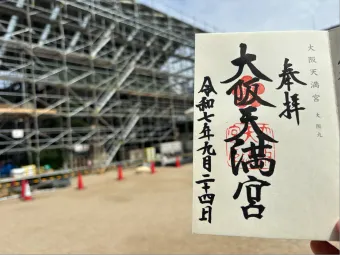 大阪天満宮
奉拝
大阪天満宮
令和七年九月二十四日